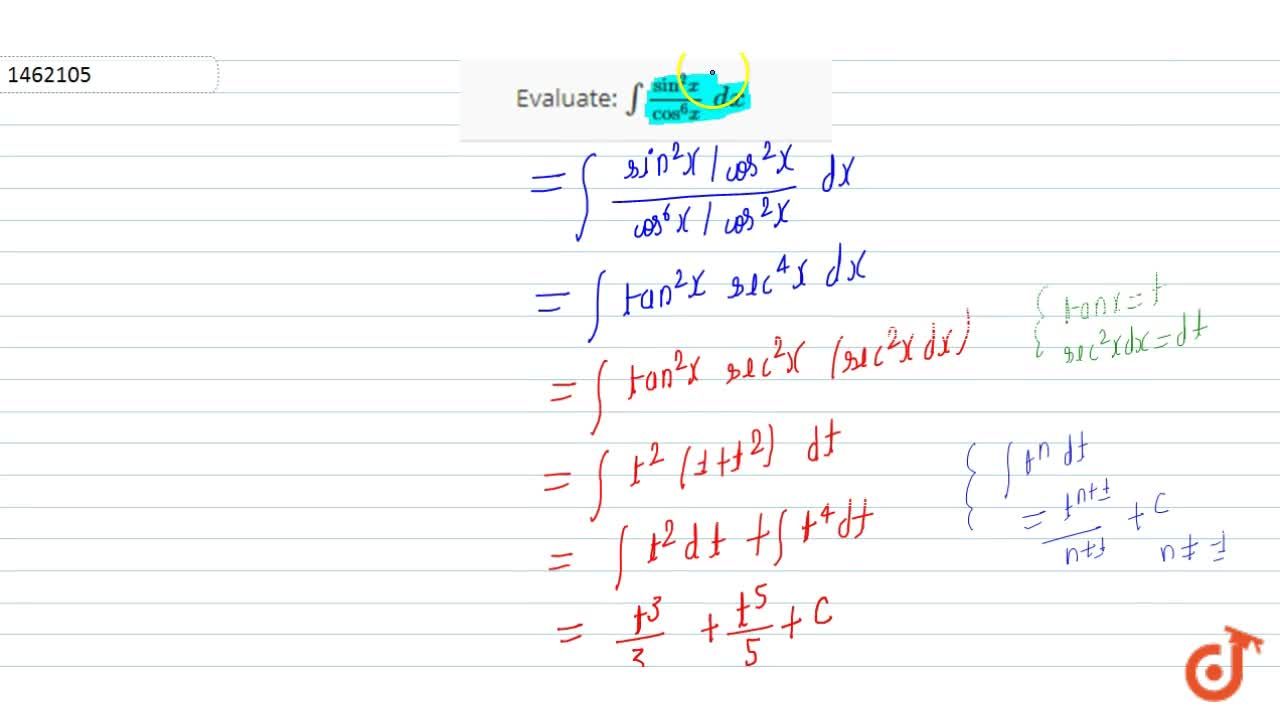 1462105
Evaluate: ∫ sin²x/cos⁶x dx
= ∫ (sin²x / cos²x)/(cos⁶x / cos²x) dx
= ∫ tan²x sec⁴x dx
{ tan x = t
sec²x dx = dt
= ∫ tan²x sec²x (sec²x dx)
= ∫ t² (1+t²) dt
{ ∫ tⁿ dt
= tⁿ⁺¹/(n+1) + C
n ≠ -1
= ∫ t² dt + ∫ t⁴ dt
= t³/3 + t⁵/5 + C